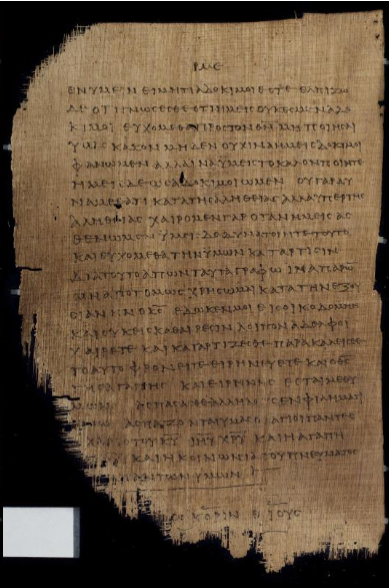 ΡΜΕ
ΕΝ ΥΜΕΙΝ ΕΙ ΜΗΤΙ ΑΔΟΚΙΜΟΙ ΕΣΤΕ ΕΛΠΙΖΩ
ΔΕ ΟΤΙ ΓΝΩΣΕΣΘΕ ΟΤΙ ΗΜΕΙΣ ΟΥΚ ΕΣΜΕΝ ΑΔΟ
ΚΙΜΟΙ ΕΥΧΟΜΕΘΑ ΠΡΟΣ ΤΟΝ ΘΝ ΜΗ ΠΟΙΗΣΑΙ
ΥΜΑΣ ΚΑΚΟΝ ΜΗΔΕΝ ΟΥΧ ΙΝΑ ΗΜΕΙΣ ΔΟΚΙΜΟΙ
ΦΑΝΩΜΕΝ ΑΛΛΑ ΙΝΑ ΥΜΕΙΣ ΤΟ ΚΑΛΟΝ ΠΟΙΗΤΕ
ΗΜΕΙΣ ΔΕ ΩΣ ΑΔΟΚΙΜΟΙ ΩΜΕΝ ΟΥ ΓΑΡ ΔΥ
ΝΑΜΕΘΑ ΤΙ ΚΑΤΑ ΤΗΣ ΑΛΗΘΕΙΑΣ ΑΛΛΑ ΥΠΕΡ ΤΗΣ
ΑΛΗΘΕΙΑΣ ΧΑΙΡΟΜΕΝ ΓΑΡ ΟΤΑΝ ΗΜΕΙΣ ΑΣ
ΘΕΝΩΜΕΝ ΥΜΕΙΣ ΔΕ ΔΥΝΑΤΟΙ ΗΤΕ ΤΟΥΤΟ
ΚΑΙ ΕΥΧΟΜΕΘΑ ΤΗΝ ΥΜΩΝ ΚΑΤΑΡΤΙΣΙΝ
ΔΙΑ ΤΟΥΤΟ ΑΠΩΝ ΤΑΥΤΑ ΓΡΑΦΩ ΙΝΑ ΠΑΡΩ̅
ΜΗ ΑΠΟΤΟΜΩΣ ΧΡΗΣΩΜΑΙ ΚΑΤΑ ΤΗΝ ΕΞΟΥ
ΣΙΑΝ ΗΝ Ο ΚΣ ΕΔΩΚΕΝ ΜΟΙ ΕΙΣ ΟΙΚΟΔΟΜΗΝ
ΚΑΙ ΟΥΚ ΕΙΣ ΚΑΘΑΙΡΕΣΙΝ ΛΟΙΠΟΝ ΑΔΕΛΦΟΙ
ΧΑΙΡΕΤΕ ΚΑΙ ΚΑΤΑΡΤΙΖΕΣΘΕ ΠΑΡΑΚΑΛΕΙΣΘΕ
ΤΟ ΑΥΤΟ ΦΡΟΝΕΙΤΕ ΕΙΡΗΝΕΥΕΤΕ ΚΑΙ Ο ΘΣ
ΑΓΑΠΗΣ ΚΑΙ ΕΙΡΗΝΗΣ ΕΣΤΑΙ ΜΕΘ Υ
ΑΣΠΑΣΑΣΘΕ ΑΛΛΗΛΟΥΣ ΕΝ ΦΙΛΗΜΑΤΙ
ΑΣΠΑΖΟΝΤΑΙ ΥΜΑΣ ΟΙ ΑΓΙΟΙ ΠΑΝΤΕΣ
ΧΑΡΙΣ ΤΟΥ ΚΥ ΙΗΥ ΧΡΥ ΚΑΙ Η ΑΓΑΠΗ
ΚΑΙ Η ΚΟΙΝΩΝΙΑ ΤΟΥ ΠΝΕΥΜΑΤΟΣ
ΠΑΝΤΩΝ ΥΜΩΝ
ΚΟΡΙΝ Β